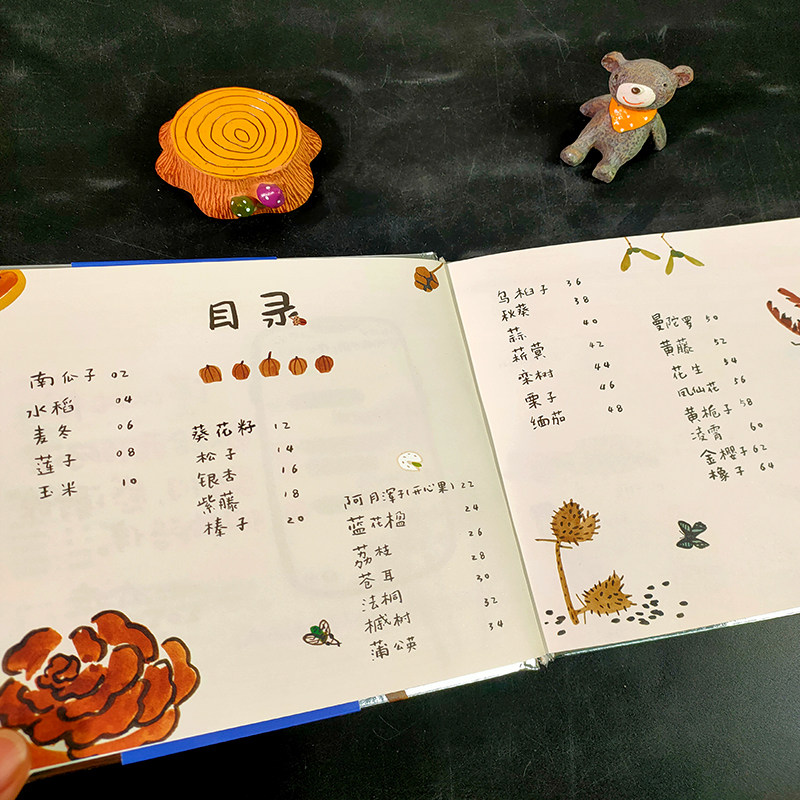 目录
南瓜子 02
水稻 04
麦冬 06
莲子 08
玉米 10
葵花籽 12
松子 14
银杏 16
紫藤 18
榛子 20
阿月浑子(开心果) 22
蓝花楹 24
荔枝 26
苍耳 28
法桐 30
槭树 32
蒲公英 34
乌桕子 36
秋葵 38
蒜 40
菥蓂 42
栾树 44
栗子 46
缅茄 48
曼陀罗 50
黄藤 52
花生 54
凤仙花 56
黄栀子 58
凌霄 60
金樱子 62
橡子 64